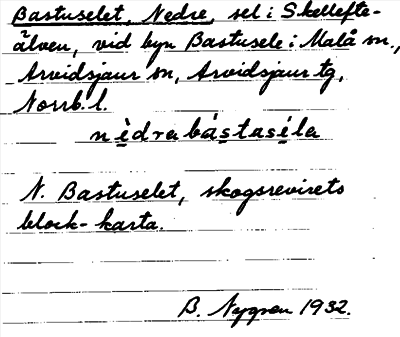 Bastuselet, Nedre, sel i Skellefte-
älven, vid byn Bastusele i Malå sn.,
Arvidsjaur sn, Arvidsjaur tg,
Norrb. l.
nèdrabástaséla
N. Bastuselet, skogsrevirets
block-karta.
B. Nygren 1932.